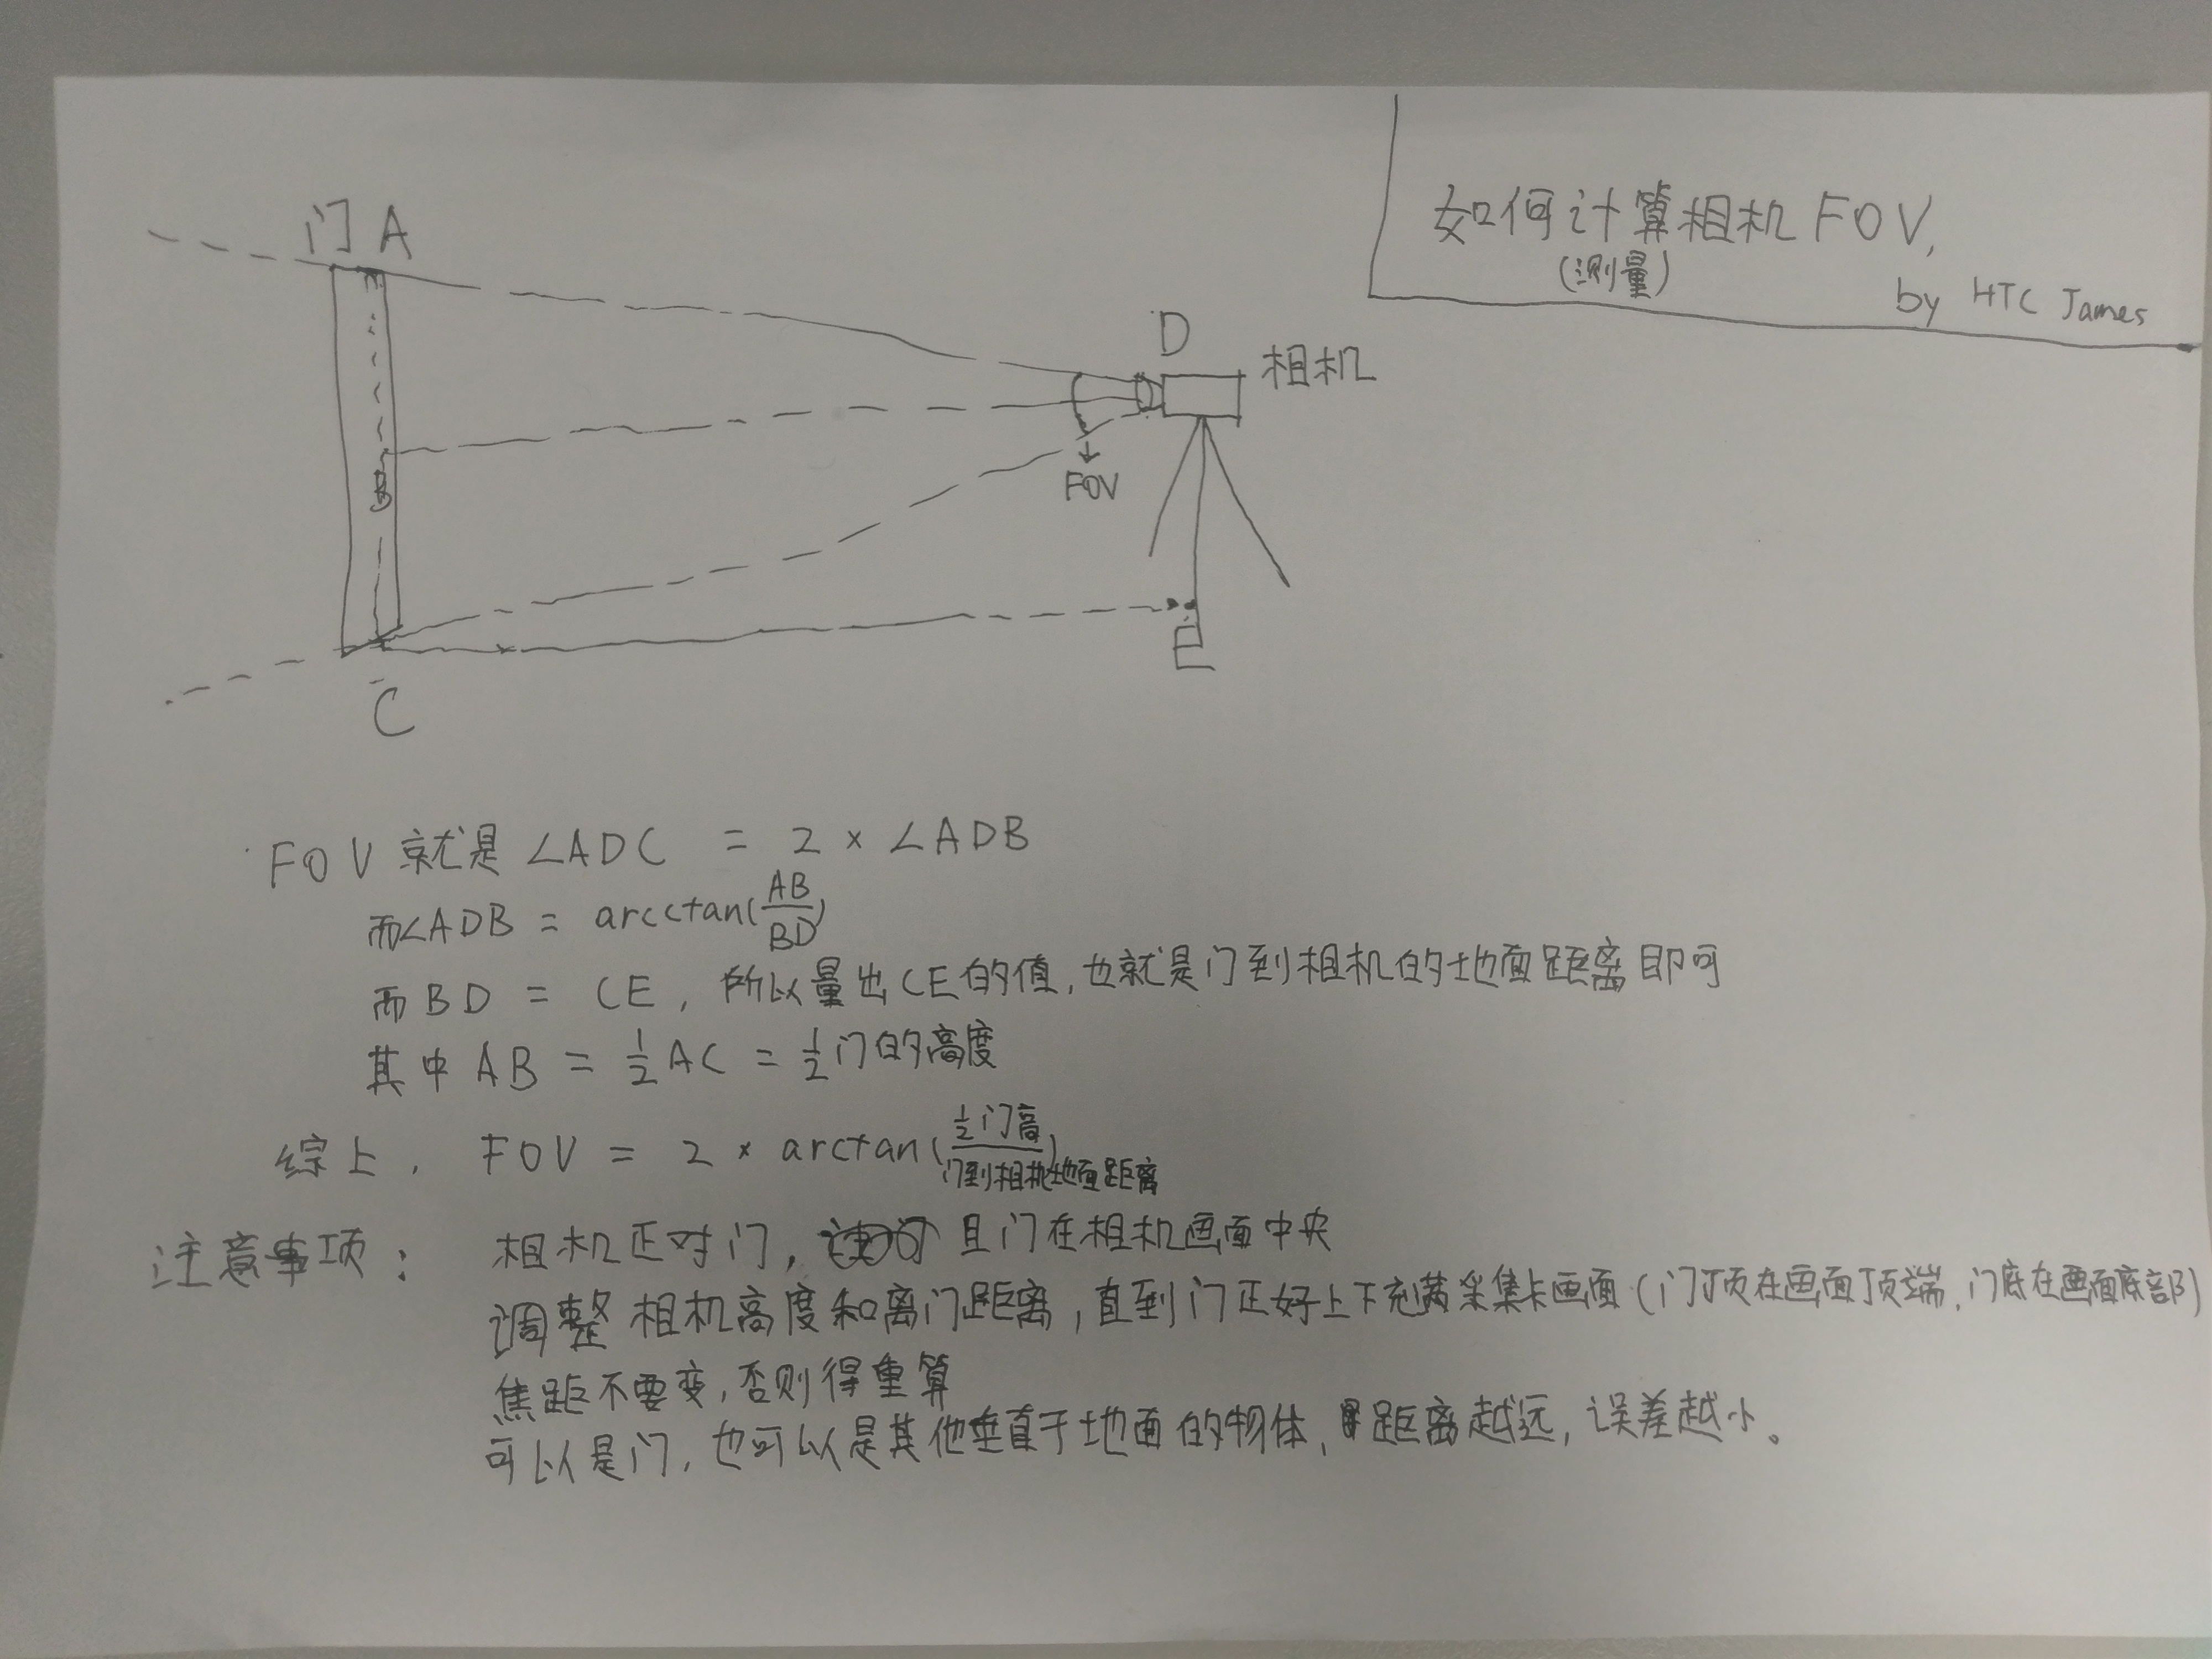 如何计算相机FOV,
(测量)
by HTC James
门 A
D
相机
B
FOV
E
C
FOV 就是 ∠ADC = 2 × ∠ADB
而∠ADB = arcctan(AB/BD)
而BD = CE, 所以量出CE的值,也就是门到相机的地面距离即可
其中AB = 1/2 AC = 1/2门的高度
综上, FOV = 2 × arctan(1/2门高/门到相机地面距离)
注意事项: 相机正对门, 且门在相机画面中央
调整相机高度和离门距离,直到门正好上下充满采集卡画面(门顶在画面顶端,门底在画面底部)
焦距不要变,否则得重算
可以是门,也可以是其他垂直于地面的物体,距离越远,误差越小。